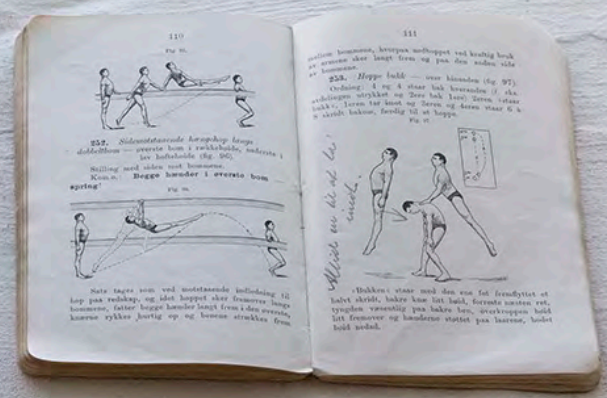 110
Fig 95.
252. Sidemotstaaende hængehop langs
dobbeltbom — øverste bom i rækkehøide, nederste i
lav hoftehøide (fig. 96).
Stilling med siden mot bommene.
Kom.n.: Begge hænder i øverste bom
spring!
Fig 96.
Sats tages som ved motstaaende indledning til
hop paa redskap, og idet hoppet sker fremover langs
bommene, fatter begge hænder langt frem i den øverste,
knærne rykkes hurtig op og benene strækkes frem
111
mellem bommene, hvorpaa nedhoppet ved kraftig bruk
av armene sker langt frem og paa den anden side
av bommene.
253. Hoppe bukk — over hinanden (fig. 97)
Ordning: 4 og 4 staar bak hverandre
utrykket og 2ere bak 1ere) 2eren (staar
bukk), 1eren tar imot og 3eren og 4eren staar 6 à
8 skridt bakom, færdig til at hoppe.
Fig. 97.
Altid en til at ta
imot.
»Bukken« staar med den ene fot fremflyttet et
halvt skridt, bakre knæ litt bøid, forreste næsten ret,
tyngden væsentlig paa bakre ben, overkroppen bøid
litt fremover og hænderne støttet paa laarene, hodet
bøid nedad.